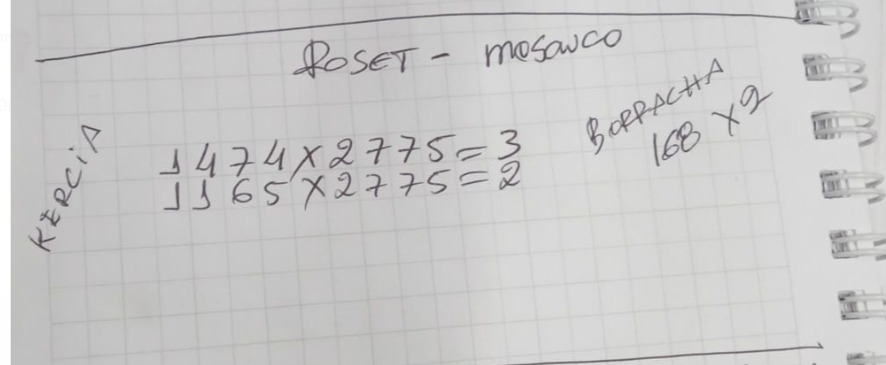 ROSET - mosaico
KERCIA
1474 X 2775 = 3
1165 X 2775 = 2
BORRACHA
168 X 2